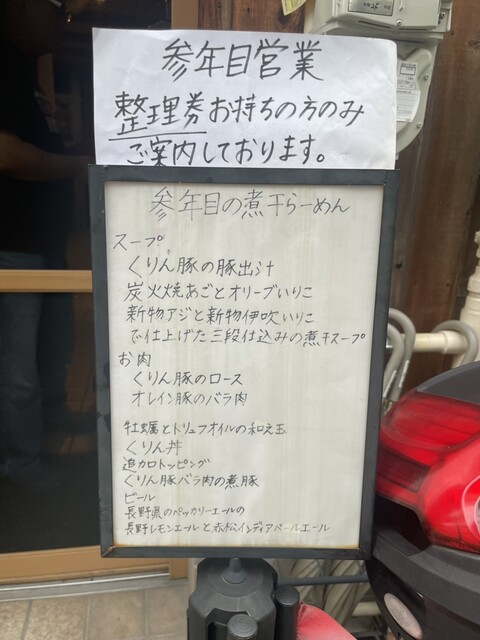 参年目営業
整理券お持ちの方のみ
ご案内しております。
参年目の煮干らーめん
スープ
くりん豚の豚出汁
炭火焼あごとオリーブいりこ
新物アジと新物伊吹いりこ
で仕上げた三段仕込みの煮干スープ
お肉
くりん豚のロース
オレイン豚のバラ肉
牡蠣とトリュフオイルの和え玉
くりん丼
追加トッピング
くりん豚バラ肉の煮豚
ビール
長野県のペッカリーエールの
長野レモンエールと赤松インディアペールエール